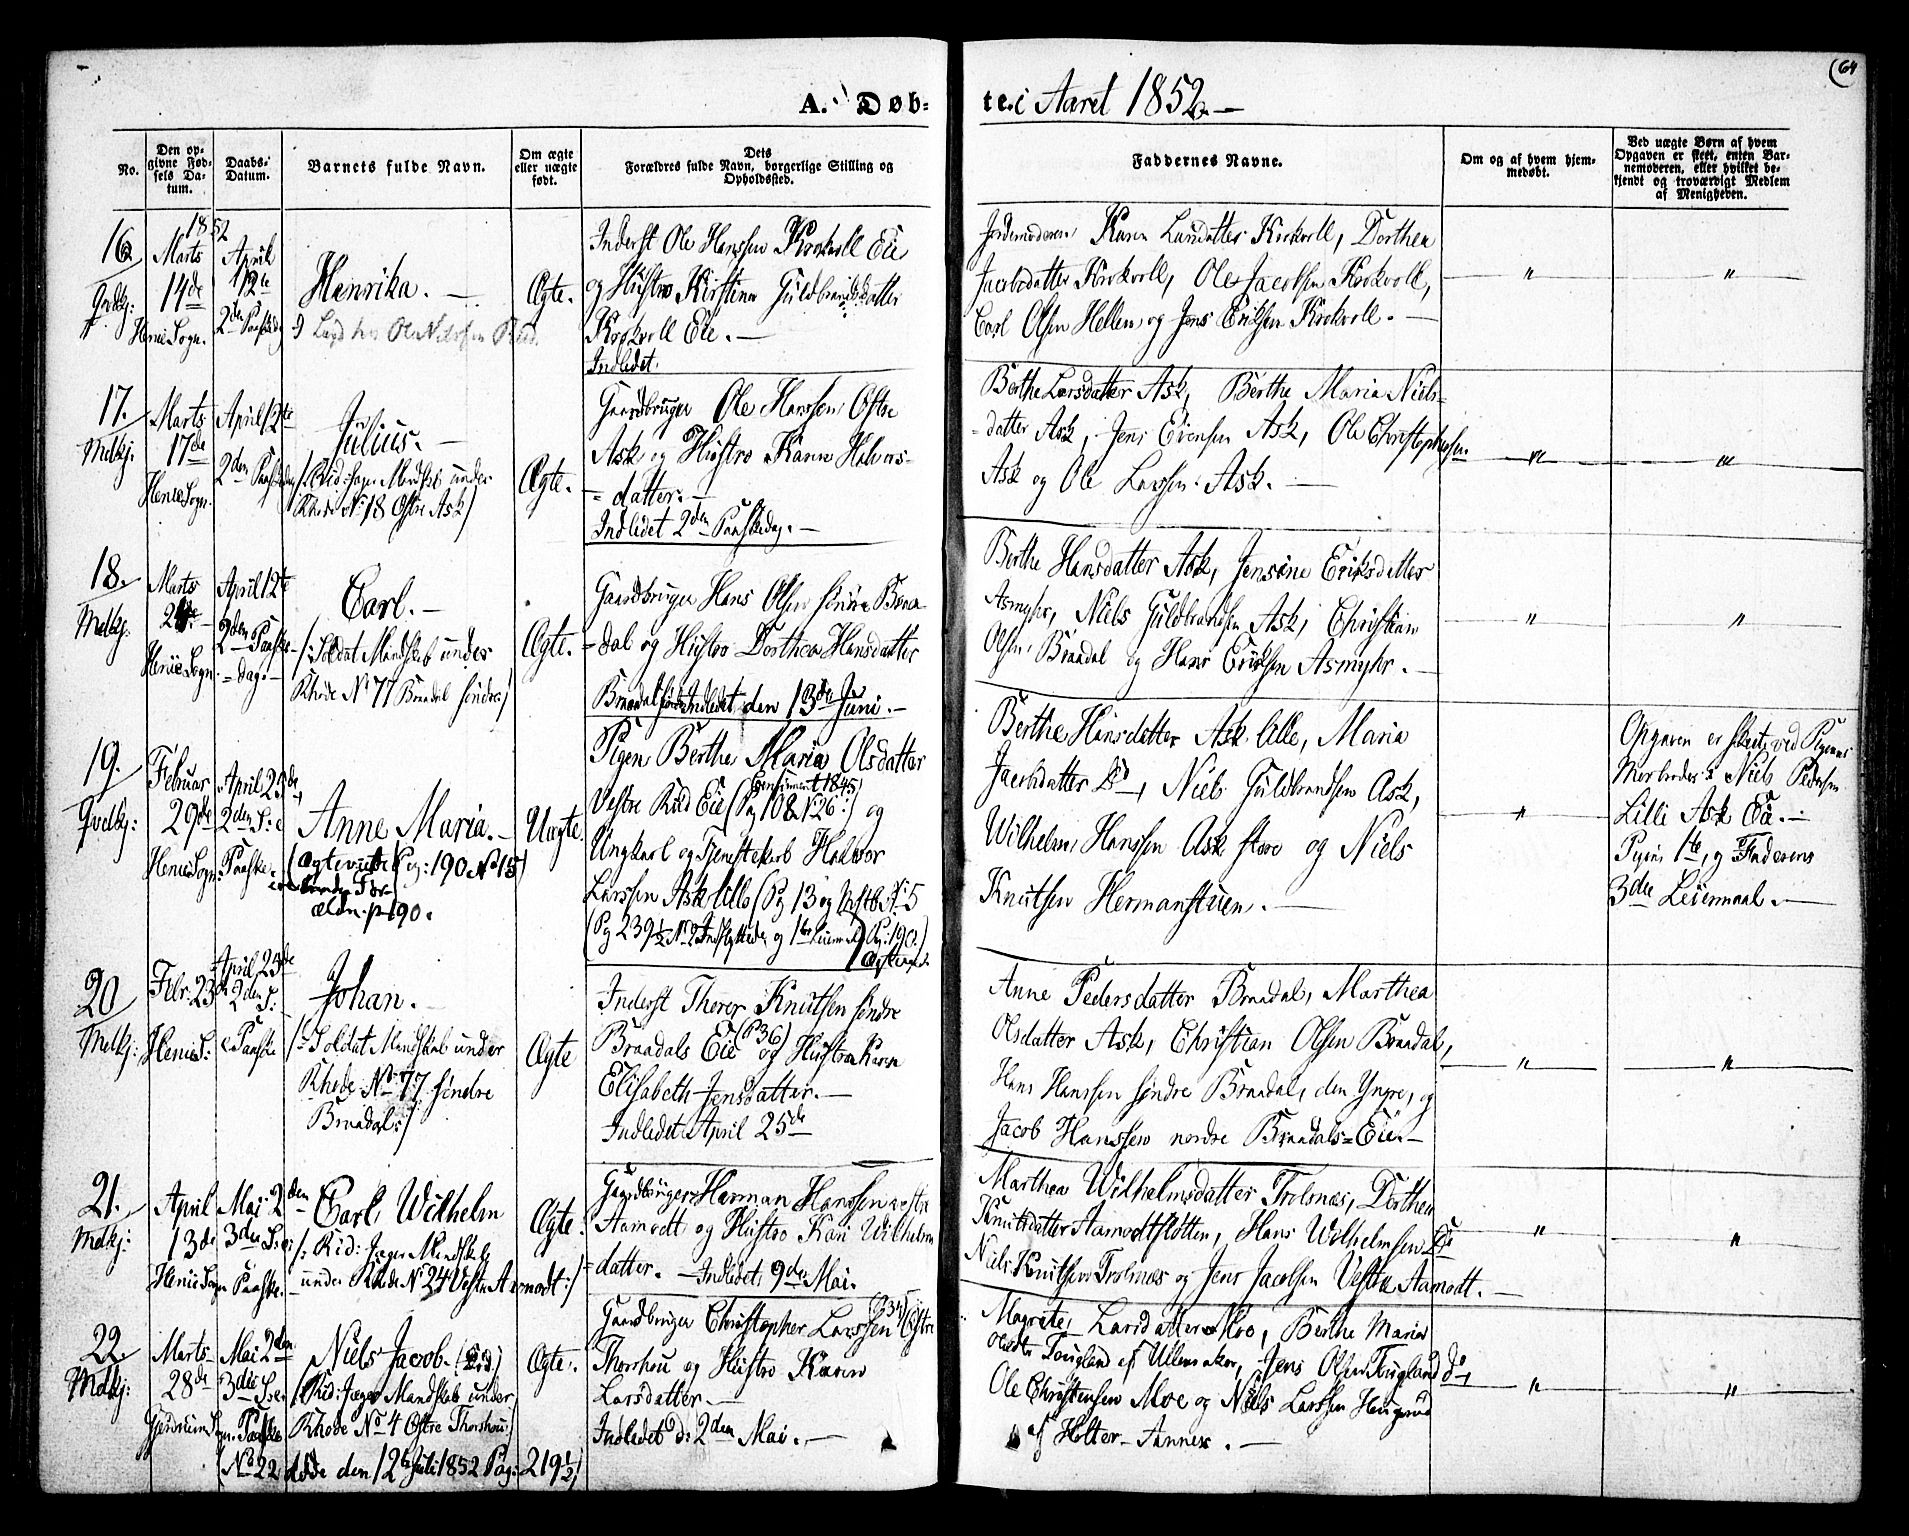 64
A. Døb-
te. i Aaret 1852. —
No.
Den opgivne Fødsels Datum.
Daabs-Datum.
Barnets fulde Navn.
Om ægte eller uægte født.
Dets Forældres fulde Navn, borgerlige Stilling og Opholdsted.
Faddernes Navne.
Om og af hvem hjemmedøbt.
Ved uægte Børn af hvem Opgaven er skeet, enten Barnemoderen, eller hvilket bekjendt og troværdigt Medlem af Menigheden.
1852
16
Qvdkj:
Marts
14de
Henie Sogn.
April
12te
2den Paaskedag
Henrika. —
Ægte.
Inderst Ole Hanssen Krokvoll Eie
og Hustro Kirstine Guldbrandsdatter
Krokvoll Eie. —
Indledet.
Jordemoderen Karen Larsdatter Krokvoll, Dorthea
Jacobsdatter Krokvoll, Ole Jacobsen Krokvoll,
Carl Olsen Hellen og Jens Eriksen Krokvoll. —
17.
Mdkj.
Marts
17de
Henie Sogn.
April 12te
2den Paaskedag
Julius. —
(Rid: Jæger Mandskab under
Rhode No 18 Østre Ask)
Ægte.
Gaardbruger Ole Hanssen Østre
Ask og Hustro Karen Halvors-
datter. —
Indledet 2den Paaskedag. —
Berthe Larsdatter Ask, Berthe Maria Niels-
datter Ask, Jens Evensen Ask, Ole Christophersen
Ask og Ole Larssen Ask. —
18.
Mdkj.
Marts
Henie Sogn
April 12te
2den Paaske-
=dag. —
Carl. —
/: Soldat Mandskab under
Rhode No 77 Braadal søndre/
Ægte.
Gaardbruger Hans Olsen søndre Braa-
dal og Hustro Dorthea Hansdatter
Braadal søndre Indledet den 13de Juni. —
Berthe Hansdatter Ask, Jensine Eriksdatter
Asmyhr, Niels Guldbrandsen Ask, Christian
Olsen Braadal og Hans Eriksen Asmyhr. —
19.
Qvdkj:
Februar
29de
Henie Sogn:
April 25de
2den S: e
Paaske.
Anne Maria. —
(Ægteviede Pag: 190 No 15)
Foræ-
ældre p 190.
Uægte
Pigen Berthe Maria Olsdatter
Vestre Rud Eie (Confirmeret 1845 Pag 108 No 26:) og
Ungkarl og Tjenestekarl Halvor
Larssen Ask lille (Pg 13 og
(Pg 239½ No 2 Indflyttede og 1te Leiermaal) Pag: 190.)
Berthe Hansdatter Ask lille, Maria
Jacobsdatter do, Niels Guldbrandsen Ask,
Wilhelm Hanssen Ask store og Niels
Knutsen Hermanstuen. —
Opgaven er skeet ved Pigens
Morbroder: Niels Pedersen
Lille Ask Eie. —
Pigens 1te, og Faderens
3die Leiermaal. —
20
Mdkj:
Febr. 23de
Henie S:
April 25de
2den S:
e Paaske
Johan. —
/: Soldat Mandskab under
Rhode No 77 søndre
Braadal:/
Ægte
Inderst Thorer Knutsen søndre
Braadals Eie (P36) og Hustro Karen
Elisabeth Jensdatter. —
Indledet April 25de
Anne Pedersdatter Braadal, Marthea
Olsdatter Ask, Christian Olsen Braadal,
Hans Hanssen søndre Braadal, den Yngre, og
Jacob Hanssen nordre Braadals=Eie. —
21.
Mdkj:
April
13de
Henie Sogn
Mai 2den
3die S: e:
Paaske.
Carl Wilhelm
/: Rid: Jæger Mandskab
under Rhode No 24 Vestre Aamodt:/
Ægte.
Gaardbruger Herman Hanssen vestre
Aamodt og Hustro Kari Wilhelms
datter. — Indledet 9de Mai.
Marthea Wilhelmsdatter Trolnæs, Dorthea
Knutsdatter Aamodtslotten, Hans Wilhelmsen Eie
Niels Knutsen Trolnæs og Jens Jacobsen Vestre Aamodt. —
22.
Mdkj:
Marts
28de
Gjerdrum Sogn.
Mai 2den
3die S: e:
Paaske
Niels Jacob. (Død.)
(Rid: Jæger Mandskab under
Rhode No 4 Østre Thorshou:)
(No 22 døde den 12te Juli 1852 Pag: 219½)
Ægte.
Gaardbruger Christopher Larssen (P34) Østre
Thorshou og Hustro Karen
Larsdatter. —
Indledet d: 2den Mai. —
Magrete Larsdatter Moe, Berthe Maria
Olsdtr Tougland af Ullensaker, Jens Olsen Tougland do,
Ole Christensen Moe og Niels Larssen Haugerud
af Holter Annex. —